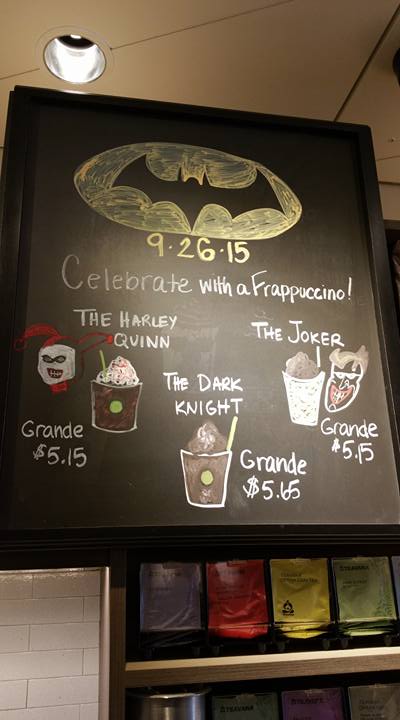 9·26·15
Celebrate with a Frappuccino!
THE HARLEY
QUINN
Grande
$5.15
THE DARK
KNIGHT
Grande
$5.65
THE JOKER
Grande
$5.15
TEAVANA
TEAVANA